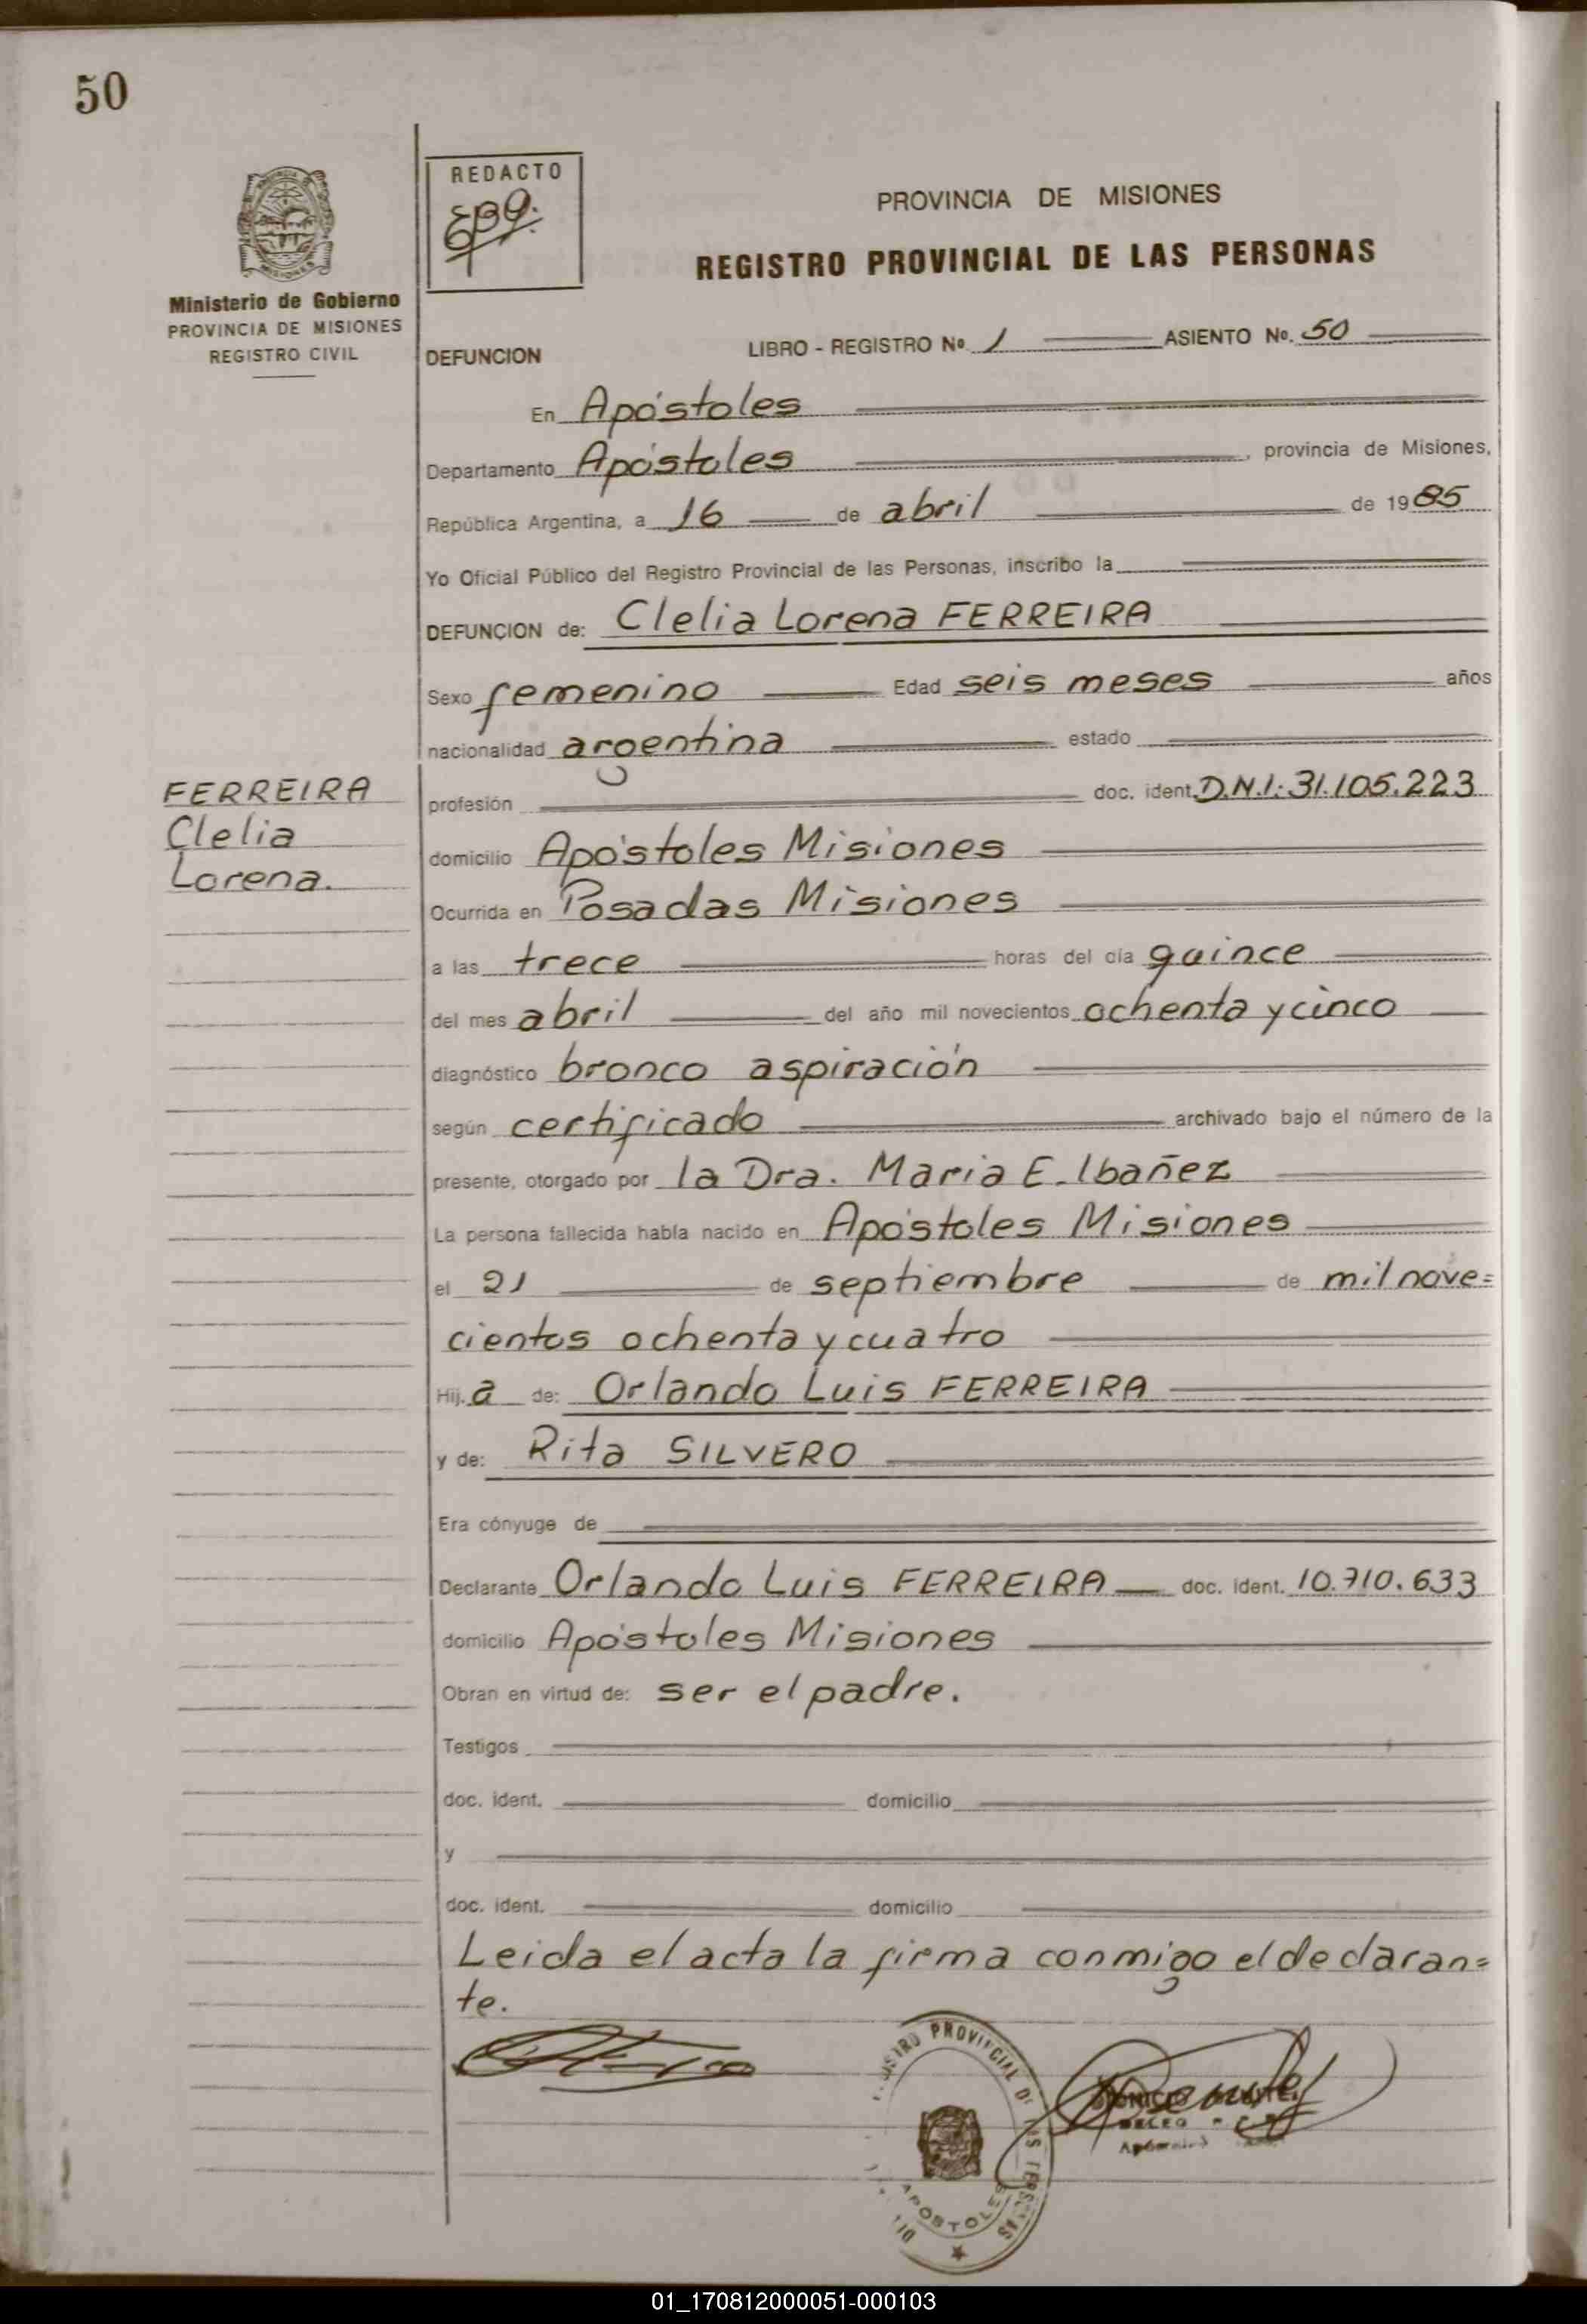 50
REDACTO
PROVINCIA DE MISIONES
REGISTRO PROVINCIAL DE LAS PERSONAS
MISIONES
Ministerio de Gobierno
PROVINCIA DE MISIONES
REGISTRO CIVIL
DEFUNCION LIBRO - REGISTRO Nº 1 ASIENTO Nº. 50
En Apóstoles
Departamento Apóstoles, provincia de Misiones,
República Argentina, a 16 de abril de 1985
Yo Oficial Público del Registro Provincial de las Personas, inscribo la
DEFUNCION de: Clelia Lorena FERREIRA
Sexo femenino Edad seis meses años
nacionalidad argentina estado
FERREIRA
Clelia
Lorena.
profesión doc. ident. D.N.I.: 31.105.223
domicilio Apóstoles Misiones
Ocurrida en Posadas Misiones
a las trece horas del día quince
del mes abril del año mil novecientos ochenta y cinco
diagnóstico bronco aspiración
según certificado archivado bajo el número de la
presente, otorgado por la Dra. Maria E. Ibañez
La persona fallecida había nacido en Apóstoles Misiones
el 21 de septiembre de mil nove=
cientos ochenta y cuatro
Hij.a de: Orlando Luis FERREIRA
y de: Rita SILVERO
Era cónyuge de
Declarante Orlando Luis FERREIRA doc. ident. 10.710.633
domicilio Apóstoles Misiones
Obran en virtud de: ser el padre.
Testigos
doc. ident. domicilio
y
doc. ident. domicilio
Leida el acta la firma conmigo el declaran=
te.
PROVINCIAL
APOSTOLES
01_170812000051-000103